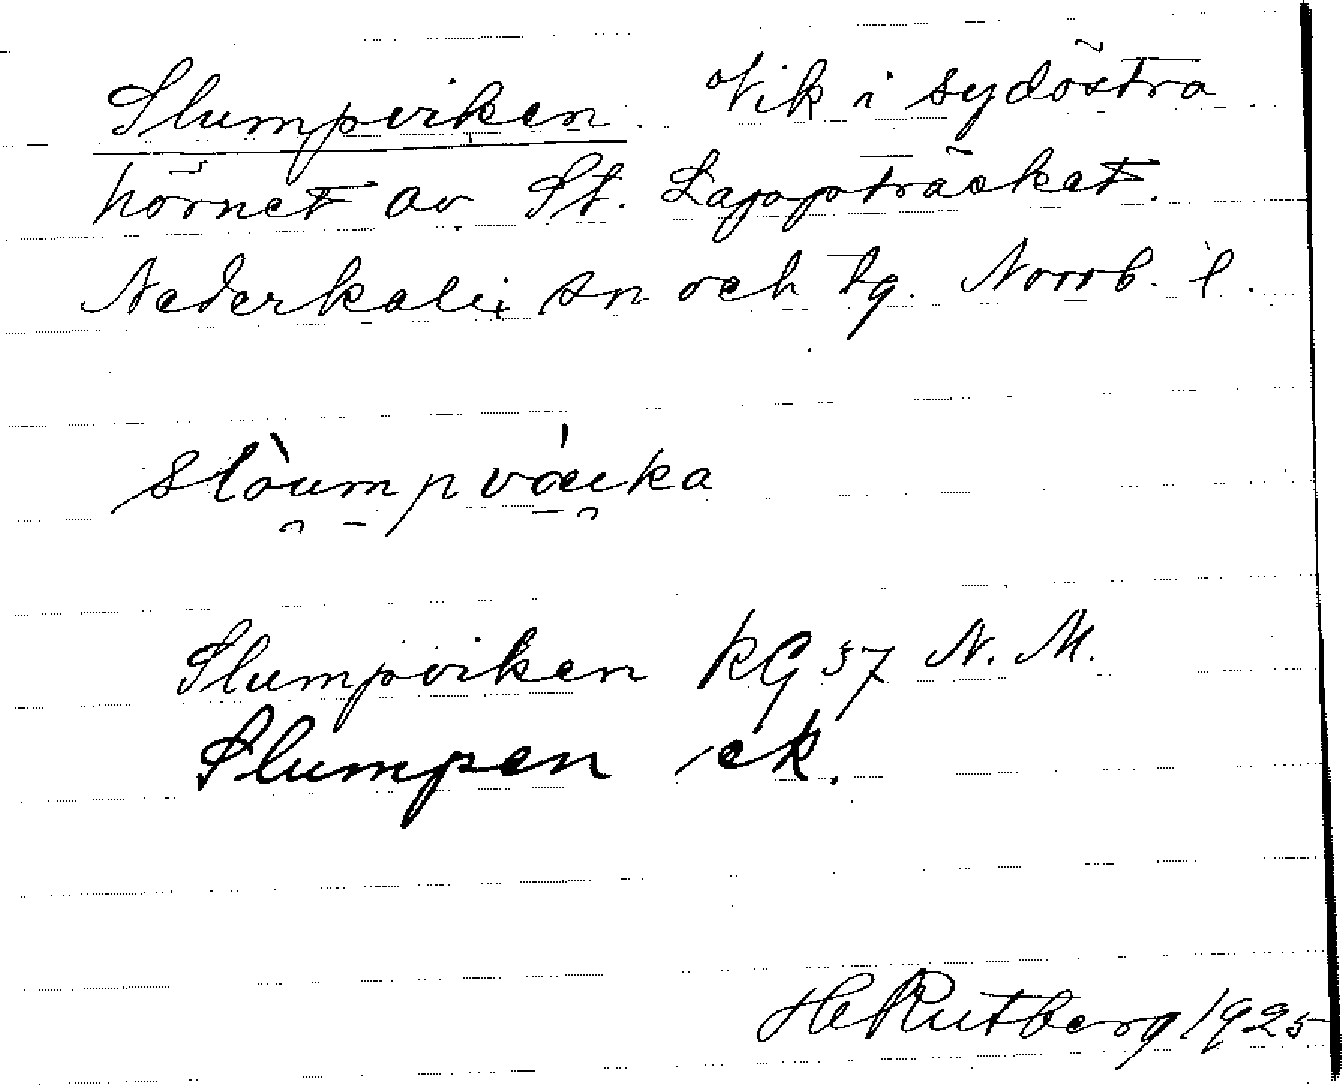 Slumpviken. Vik i sydöstra
hörnet av St. Lappträsket.
Nederkalix sn och tg. Norrb. l.
slòumpváika
Slumpviken KG 57 N. M.
Slumpen ek.
H Rutberg 1925